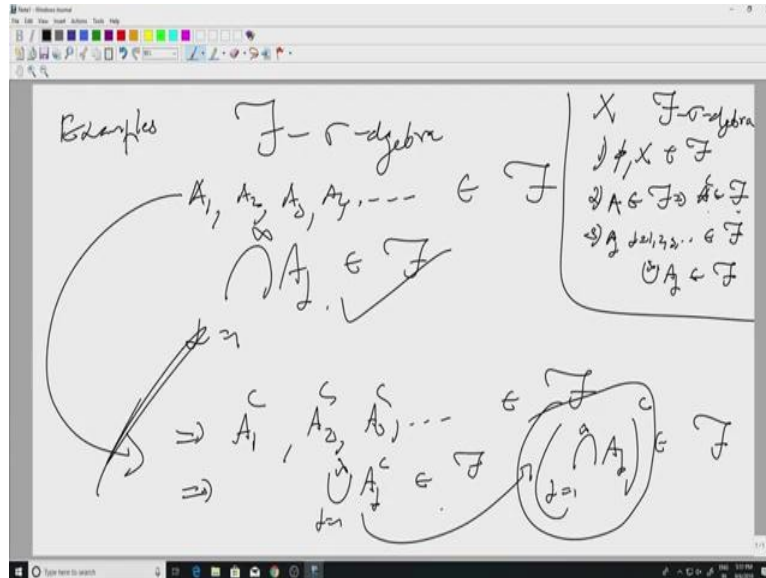 Note1 - Windows Journal
File Edit View Insert Actions Tools Help
Examples F - σ-algebra
A₁, A₂, A₃, A₄, ---- ∈ F
∞
⋂ Aⱼ ∈ F
j=1
⇒ A₁ᶜ, A₂ᶜ, A₃ᶜ, ---- ∈ F
⇒ ∞⋃j=1 Aⱼᶜ ∈ F (∞⋂j=1 Aⱼ)ᶜ ∈ F
X F-σ-algebra
1) ϕ, X ∈ F
2) A ∈ F ⇒ Aᶜ ∈ F
3) Aⱼ j=1,2,3,.. ∈ F
∞⋃ Aⱼ ∈ F
Type here to search